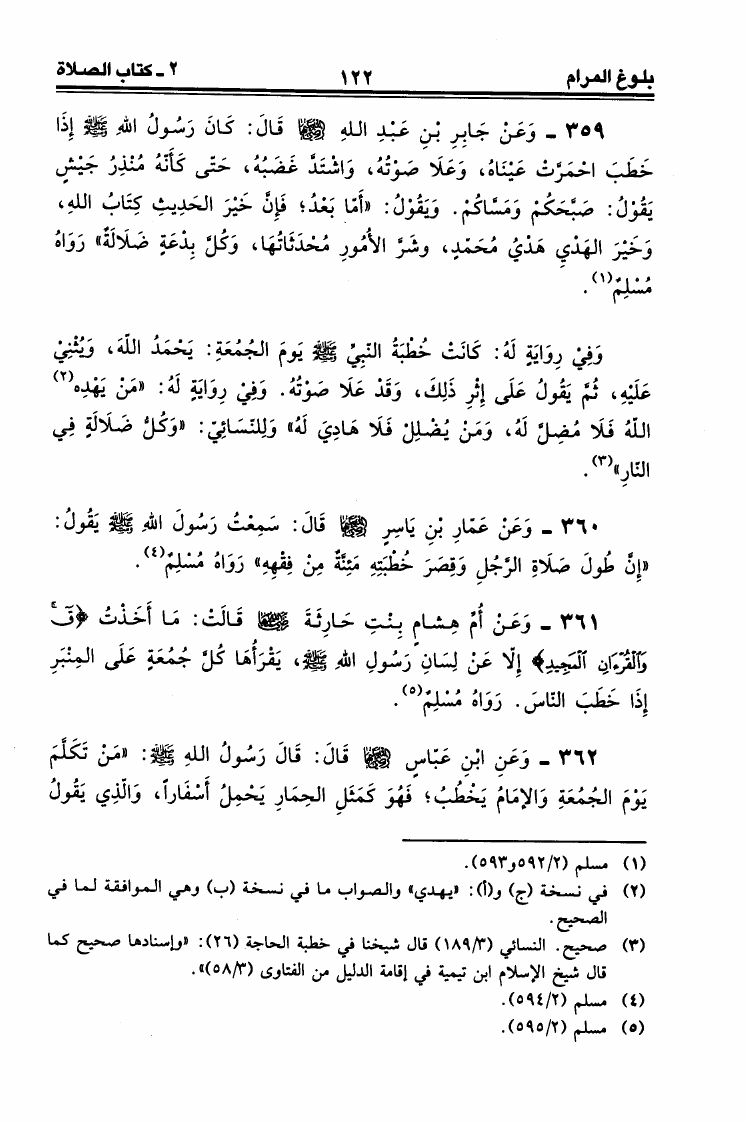 بلوغ المرام ١٢٢ ٢ ـ كتاب الصلاة
٣٥٩ ـ وَعَنْ جَابِرِ بْنِ عَبْدِ اللهِ ﵄ قَالَ: كَانَ رَسُولُ اللهِ ﷺ إِذَا
خَطَبَ احْمَرَّتْ عَيْنَاهُ، وَعَلَا صَوْتُهُ، وَاشْتَدَّ غَضَبُهُ، حَتَّى كَأَنَّهُ مُنْذِرُ جَيْشٍ
يَقُوْلُ: صَبَّحَكُمْ وَمَسَّاكُمْ. وَيَقُوْلُ: «أَمَّا بَعْدُ؛ فَإِنَّ خَيْرَ الحَدِيثِ كِتَابُ اللهِ،
وَخَيْرَ الهَدْيِ هَدْيُ مُحَمَّدٍ، وشَرَّ الأُمُورِ مُحْدَثَاتُهَا، وَكُلَّ بِدْعَةٍ ضَلَالَةٌ» رَوَاهُ
مُسْلِمٌ(١).
وَفِيْ رِوَايَةٍ لَهُ: كَانَتْ خُطْبَةُ النَّبِيِّ ﷺ يَومَ الجُمُعَةِ: يَحْمَدُ اللّهَ، وَيُثْنِيْ
عَلَيْهِ، ثُمَّ يَقُولُ عَلَى إِثْرِ ذَلِكَ، وَقَدْ عَلَا صَوْتُهُ. وَفِيْ رِوَايَةٍ لَهُ: «مَنْ يَهْدِه(٢)
اللّهُ فَلَا مُضِلَّ لَهُ، وَمَنْ يُضْلِلْ فَلَا هَادِيَ لَهُ» وَلِلنَّسَائِيِّ: «وَكُلُّ ضَلَالَةٍ فِي
النَّارِ»(٣).
٣٦٠ ـ وَعَنْ عَمَّارِ بْنِ يَاسِرٍ ﵄ قَالَ: سَمِعْتُ رَسُولَ اللهِ ﷺ يَقُولُ:
«إِنَّ طُولَ صَلَاةِ الرَّجُلِ وَقِصَرَ خُطْبَتِهِ مَئِنَّةٌ مِنْ فِقْهِهِ» رَوَاهُ مُسْلِمٌ(٤).
٣٦١ ـ وَعَنْ أُمِّ هِشَامٍ بِنْتِ حَارِثَةَ ﵄ قَالَتْ: مَا أَخَذْتُ ﴿قٓۚ
وَٱلْقُرْءَانِ ٱلْمَجِيدِ﴾ إِلَّا عَنْ لِسَانِ رَسُولِ اللهِ ﷺ، يَقْرَأُهَا كُلَّ جُمُعَةٍ عَلَى المِنْبَرِ
إِذَا خَطَبَ النَّاسَ. رَوَاهُ مُسْلِمٌ(٥).
٣٦٢ ـ وَعَنِ ابْنِ عَبَّاسٍ ﵄ قَالَ: قَالَ رَسُولُ اللهِ ﷺ: «مَنْ تَكَلَّمَ
يَوْمَ الجُمُعَةِ وَالإمَامُ يَخْطُبُ؛ فَهُوَ كَمَثَلِ الحِمَارِ يَحْمِلُ أَسْفَاراً، وَالَّذِي يَقُولُ
(١) مسلم (٥٩٢/٢و٥٩٣).
(٢) في نسخة (ج) و(أ): «يهدي» والصواب ما في نسخة (ب) وهي الموافقة لما في
الصحيح.
(٣) صحيح. النسائي (١٨٩/٣) قال شيخنا في خطبة الحاجة (٢٦): «وإسنادها صحيح كما
قال شيخ الإسلام ابن تيمية في إقامة الدليل من الفتاوى (٥٨/٣)».
(٤) مسلم (٥٩٤/٢).
(٥) مسلم (٥٩٥/٢).